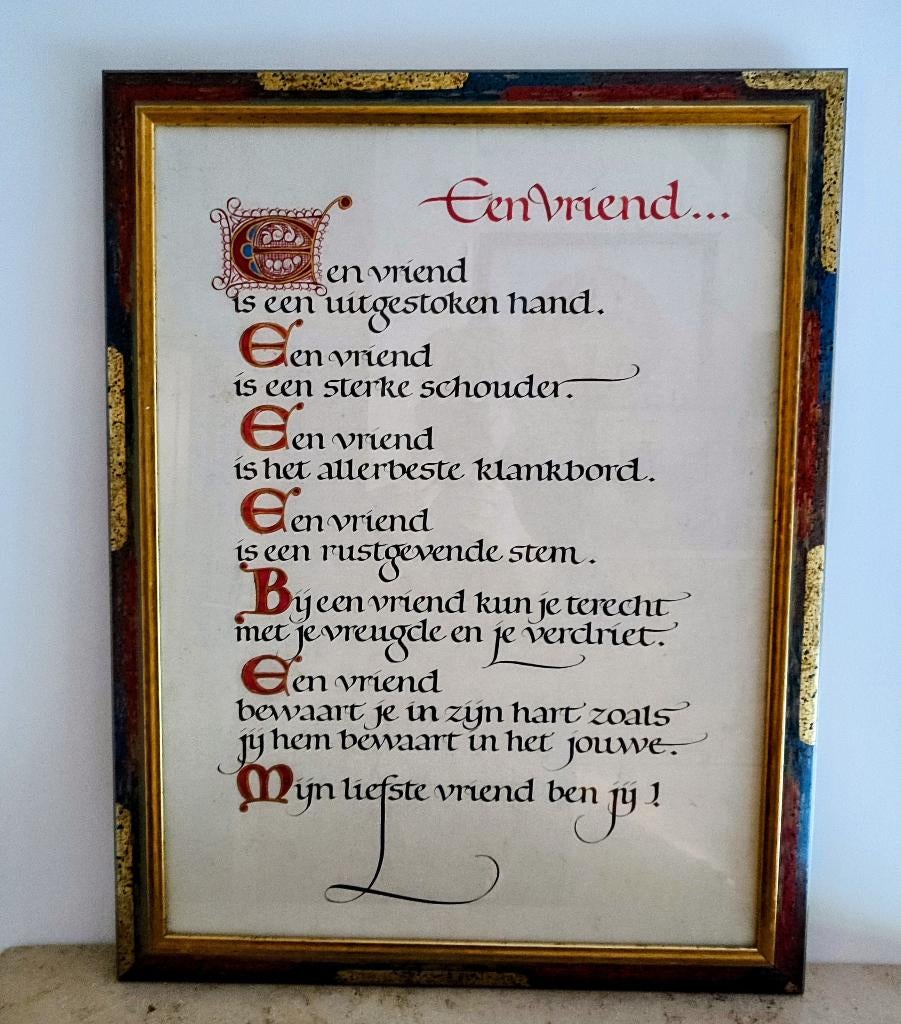 Een vriend...
Een vriend
is een uitgestoken hand.
Een vriend
is een sterke schouder.
Een vriend
is het allerbeste klankbord.
Een vriend
is een rustgevende stem.
Bij een vriend kun je terecht
met je vreugde en je verdriet.
Een vriend
bewaart je in zijn hart zoals
jij hem bewaart in het jouwe.
Mijn liefste vriend ben jij!